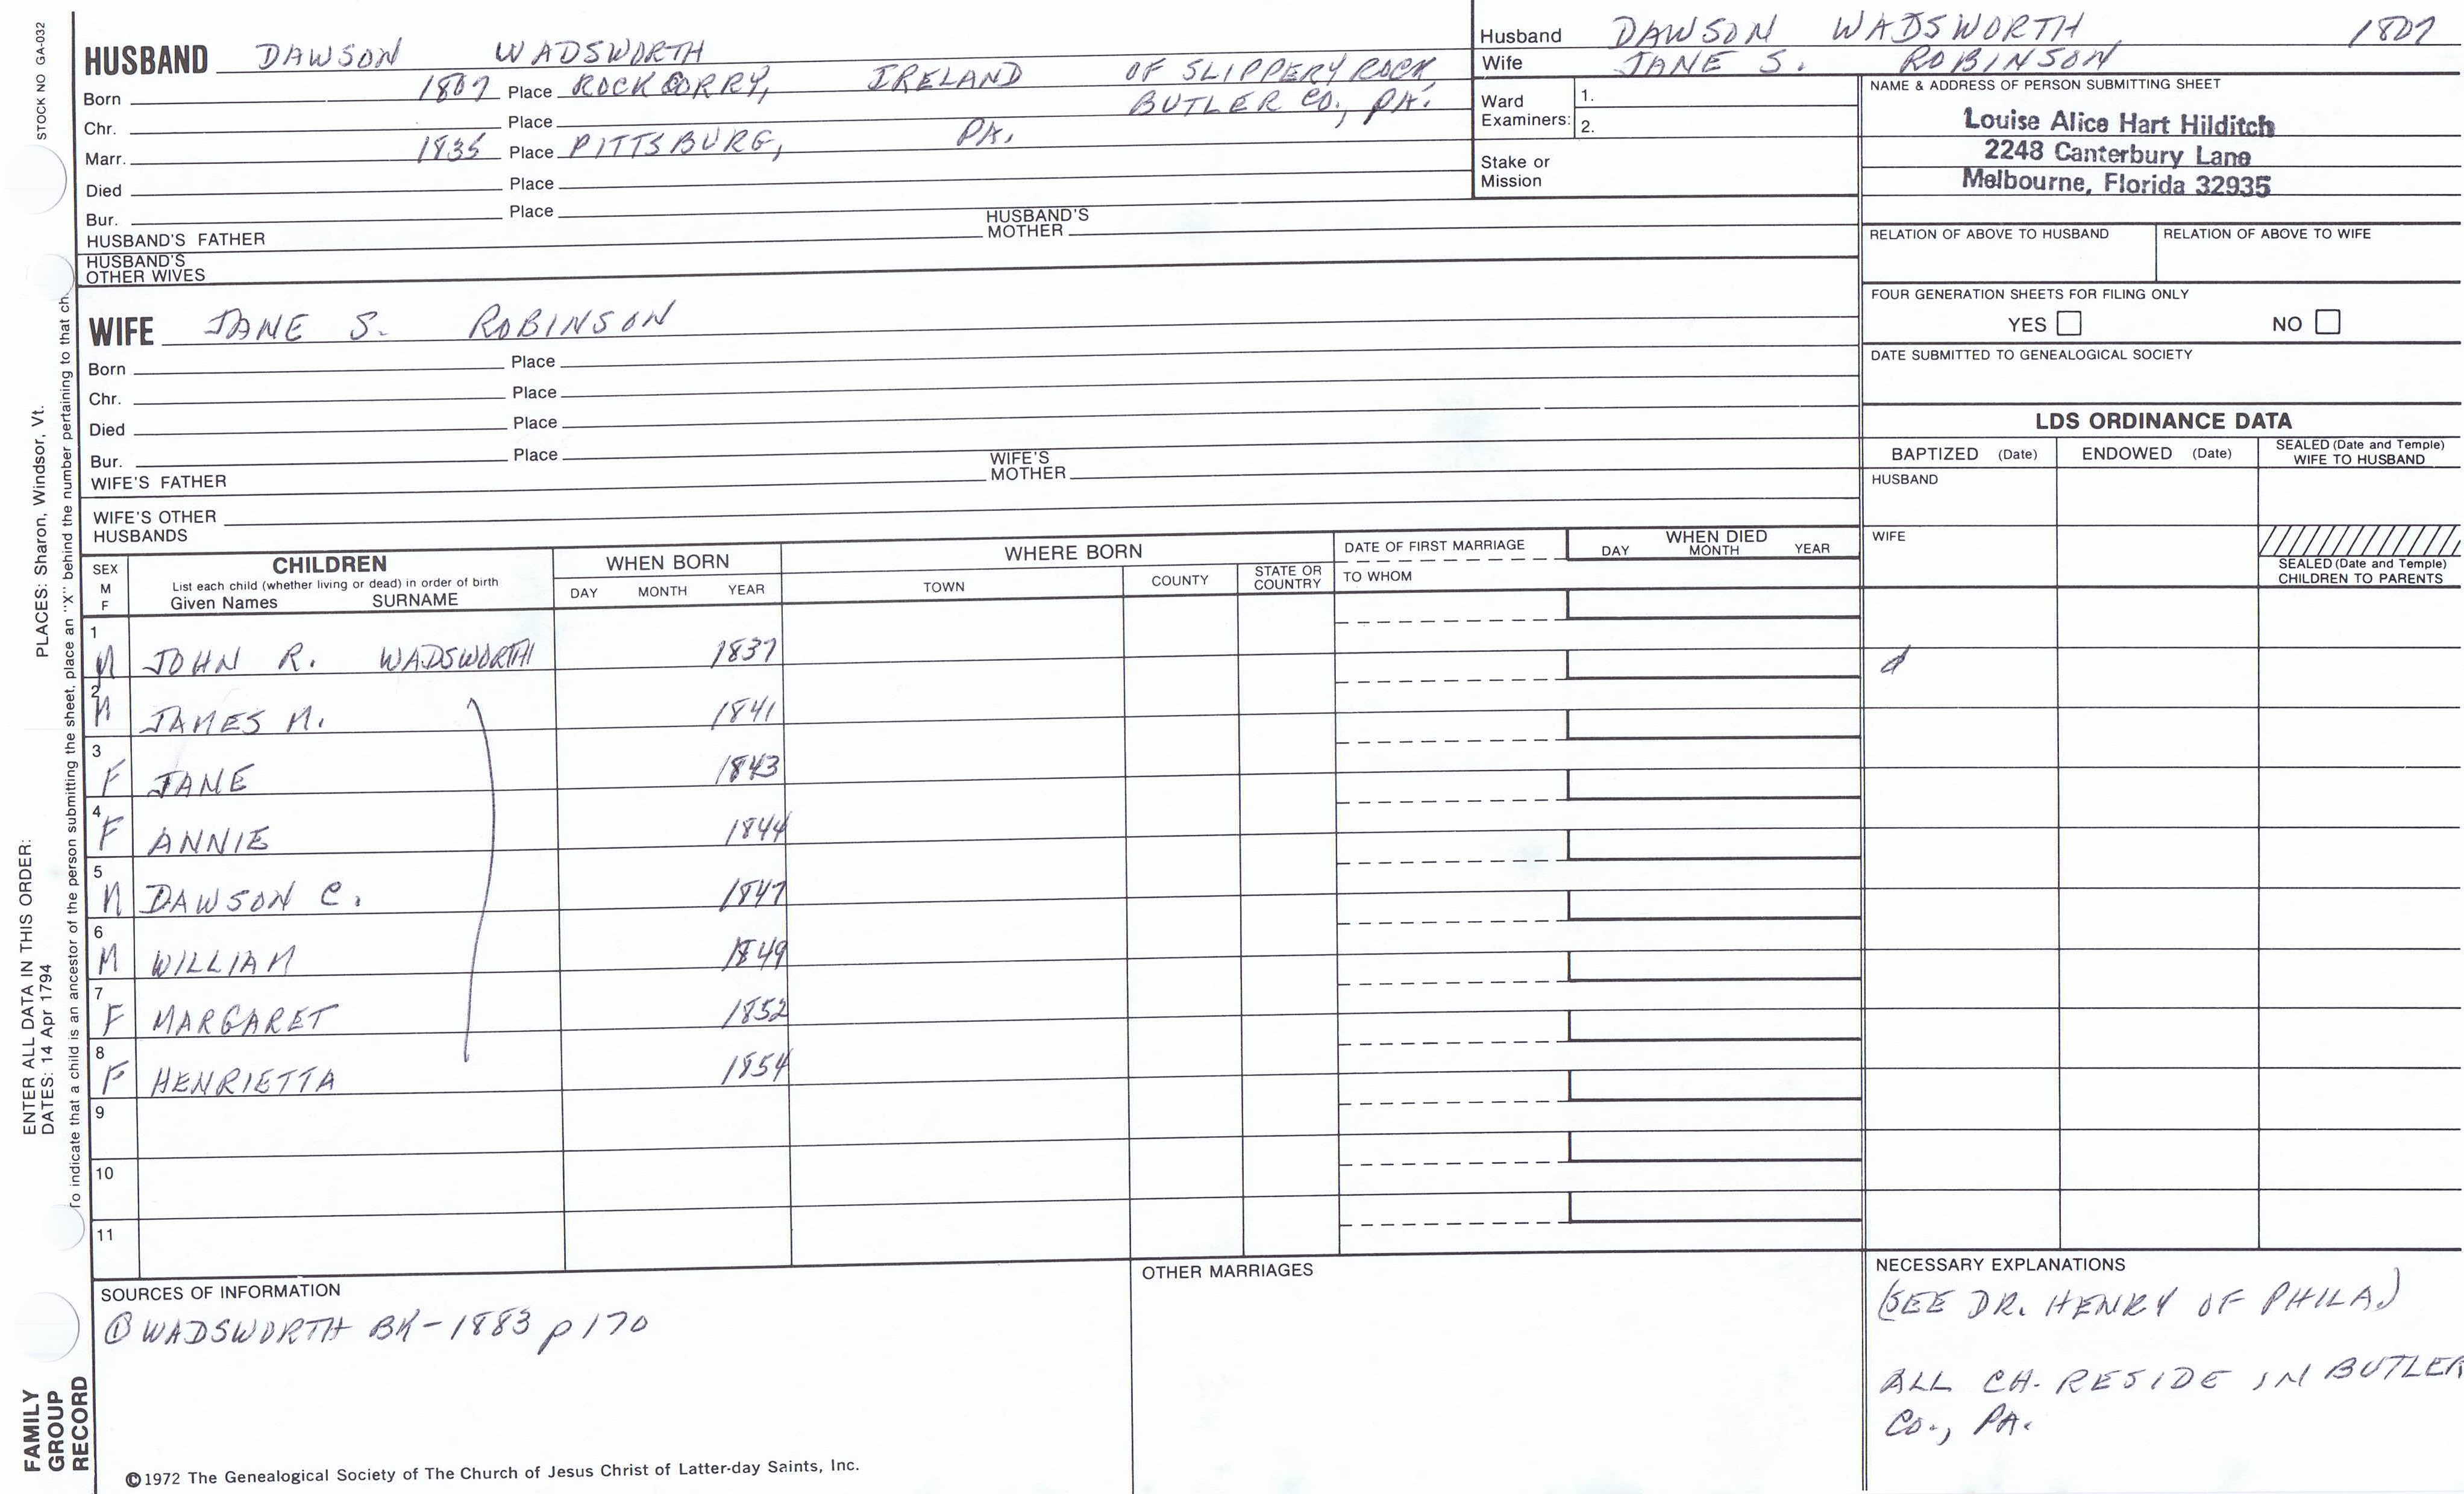 STOCK NO GA-032
HUSBAND DAWSON WADSWORTH
Born 1807 Place ROCKCORRY, IRELAND OF SLIPPERY ROCK,
BUTLER CO., PA.
Chr. Place
Marr. 1835 Place PITTSBURG, PA.
Died Place
Bur. Place
HUSBAND'S FATHER HUSBAND'S MOTHER
HUSBAND'S OTHER WIVES
WIFE JANE S. ROBINSON
Born Place
Chr. Place
Died Place
Bur. Place
WIFE'S FATHER WIFE'S MOTHER
WIFE'S OTHER HUSBANDS
Husband DAWSON WADSWORTH 1807
Wife JANE S. ROBINSON
Ward Examiners: 1.
2.
Stake or Mission
NAME & ADDRESS OF PERSON SUBMITTING SHEET
Louise Alice Hart Hilditch
2248 Canterbury Lane
Melbourne, Florida 32935
RELATION OF ABOVE TO HUSBAND RELATION OF ABOVE TO WIFE
FOUR GENERATION SHEETS FOR FILING ONLY
YES NO
DATE SUBMITTED TO GENEALOGICAL SOCIETY
LDS ORDINANCE DATA
BAPTIZED (Date) ENDOWED (Date) SEALED (Date and Temple) WIFE TO HUSBAND
HUSBAND
WIFE
SEALED (Date and Temple) CHILDREN TO PARENTS
SEX M F CHILDREN WHEN BORN WHERE BORN DATE OF FIRST MARRIAGE WHEN DIED
List each child (whether living or dead) in order of birth
Given Names SURNAME DAY MONTH YEAR TOWN COUNTY STATE OR COUNTRY TO WHOM DAY MONTH YEAR
1 M JOHN R. WADSWORTH 1837
2 M JAMES M. 1841
3 F JANE 1843
4 F ANNIE 1844
5 M DAWSON C. 1847
6 M WILLIAM 1849
7 F MARGARET 1852
8 F HENRIETTA 1854
9
10
11
SOURCES OF INFORMATION
① WADSWORTH BK-1883 p 170
OTHER MARRIAGES
NECESSARY EXPLANATIONS
(SEE DR. HENRY OF PHILA.)
ALL CH. RESIDE IN BUTLER
CO., PA.
©1972 The Genealogical Society of The Church of Jesus Christ of Latter-day Saints, Inc.
ENTER ALL DATA IN THIS ORDER: PLACES: Sharon, Windsor, Vt.
DATES: 14 Apr 1794
To indicate that a child is an ancestor of the person submitting the sheet, place an "X" behind the number pertaining to that ch
FAMILY
GROUP
RECORD